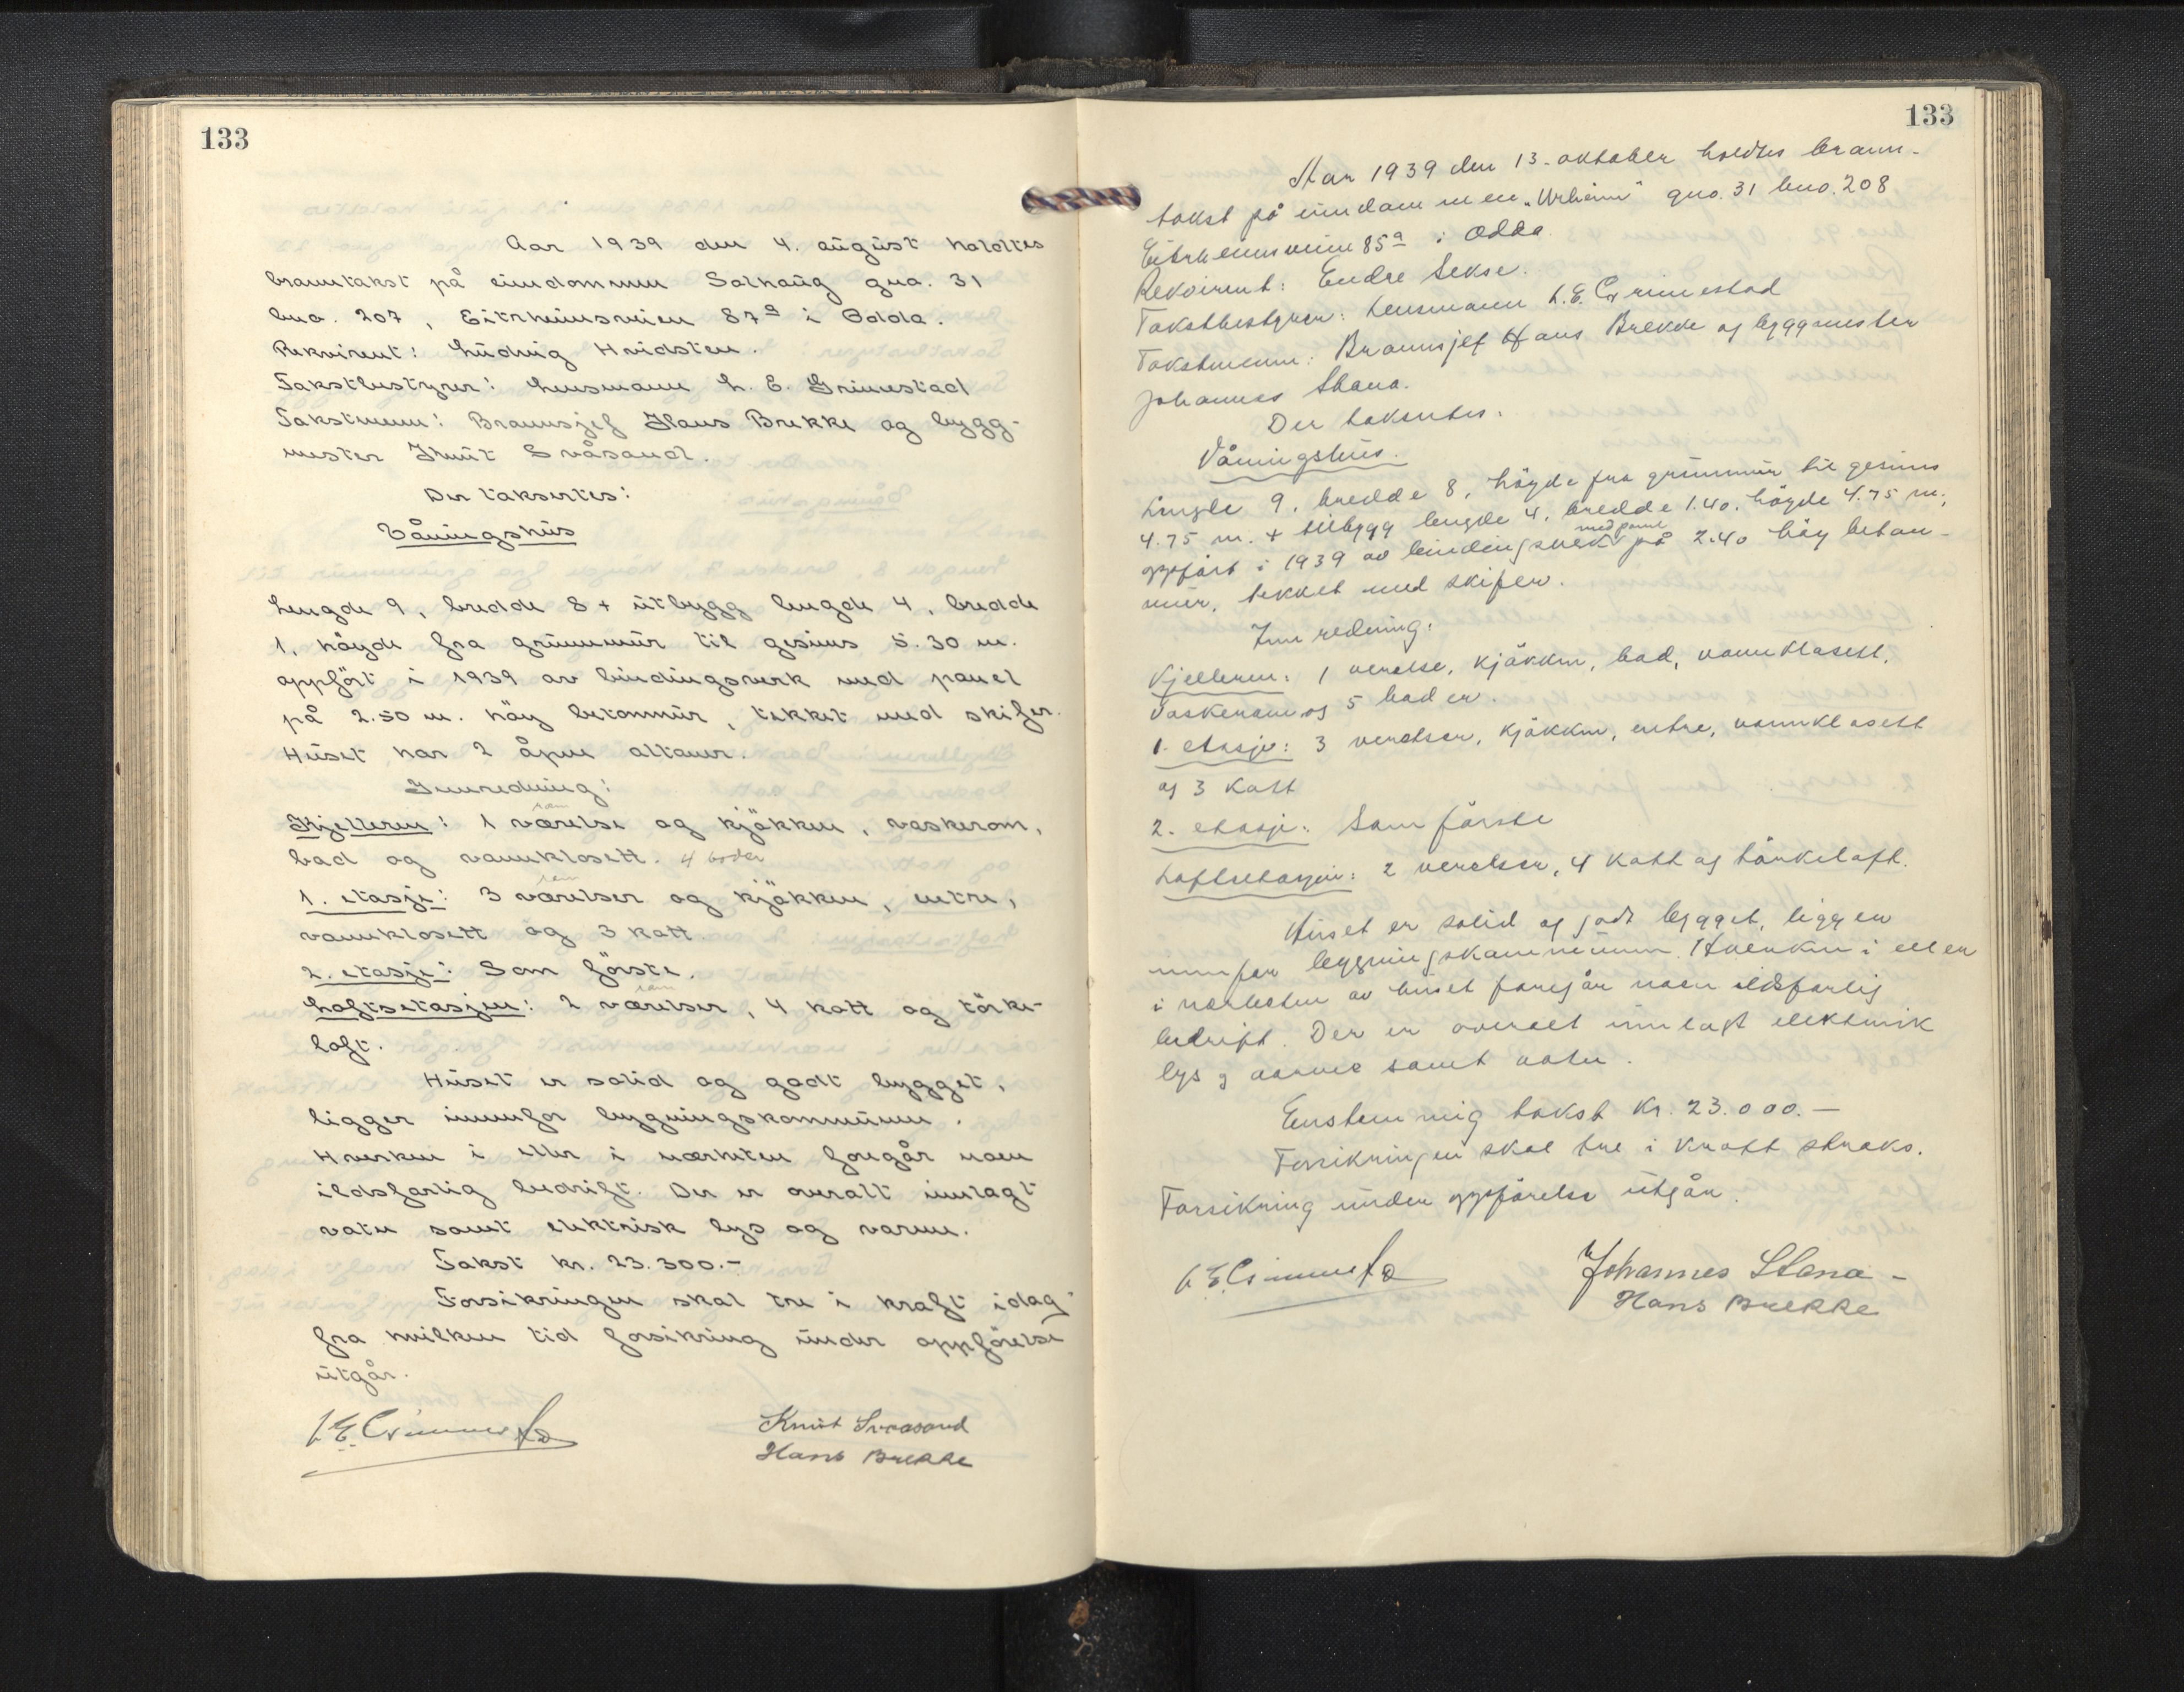 133
Aar 1939 den 4. august holdtes
branntakst på eiendommen Solhaug gno. 31
bno. 207, Eitrheimsveien 87a i Odda.
Rekvirent: Ludvig Hvidsten.
Takstbestyrer: Lensmann L. E. Grimestad
Takstmenn: Brannsjef Hans Brekke og bygg-
mester Knut Svåsand.
Der taksertes:
Våningshus
Lengde 9, bredde 8 + utbygg lengde 4, bredde
1, höyde fra grunnmur til gesims 5.30 m.
oppfört i 1939 av bindingsverk med panel
på 2.50 m. höy betonmur, tekket med skifer.
Huset har 2 åpne altaner.
Innredning:
rom
Kjelleren: 1 værelse og kjökken, vaskerom,
bad og vannklosett. 4 boder
rom
1. etasje: 3 værelser og kjökken, entre,
vannklosett og 3 kott.
2. etasje: Som förste.
rom
Loftsetasjen: 2 værelser, 4 kott og törke-
loft.
Huset er solid og godt bygget,
ligger innenfor bygningskommunen.
Hverken i eller i nærheten foregår noen
ildsfarlig bedrift. Der er overalt innlagt
vatn samt elektrisk lys og varme.
Takst kr. 23.300.-
Forsikringen skal tre i kraft idag
fra hvilken tid forsikring under oppförelse
utgår.
L E Grimestad
Knut Svaasand
Hans Brekke
133
Aar 1939 den 13. oktober holdtes brann-
takst på eiendommen "Urheim" gno. 31 bno. 208
Eitrheimsveien 85a i Odda.
Rekvirent: Endre Sekse.
Takstbestyrer: Lensmann L. E. Grimestad
Takstmenn: Brannsjef Hans Brekke og byggmester
Johannes Stana.
Der taksertes:
Våningshus.
Lengde 9, bredde 8, höyde fra grunnmur til gesims
4.75 m. + tilbygg lengde 4, bredde 1.40, höyde 4.75 m,
med panel
oppfört i 1939 av bindingsverk på 2.40 höy beton-
mur, tekket med skifer.
Innredning:
Kjelleren: 1 verelse, kjökken, bad, vannklosett,
vaskerom og 5 boder.
1. etasje: 3 verelser, kjökken, entre, vannklosett
og 3 kott
2. etasje: Som förste
Loftsetasjen: 2 verelser, 4 kott og törkeloft.
Huset er solid og godt bygget, ligger
innenfor bygningskommunen. Hverken i eller
i nærheten av huset foregår noen ildsfarlig
bedrift. Der er overalt innlagt elektrisk
lys og varme samt vatn.
Enstemmig takst kr. 23.000.—
Forsikringen skal tre i kraft straks.
Forsikring under oppförelse utgår.
L E Grimestad
Johannes Stana -
Hans Brekke